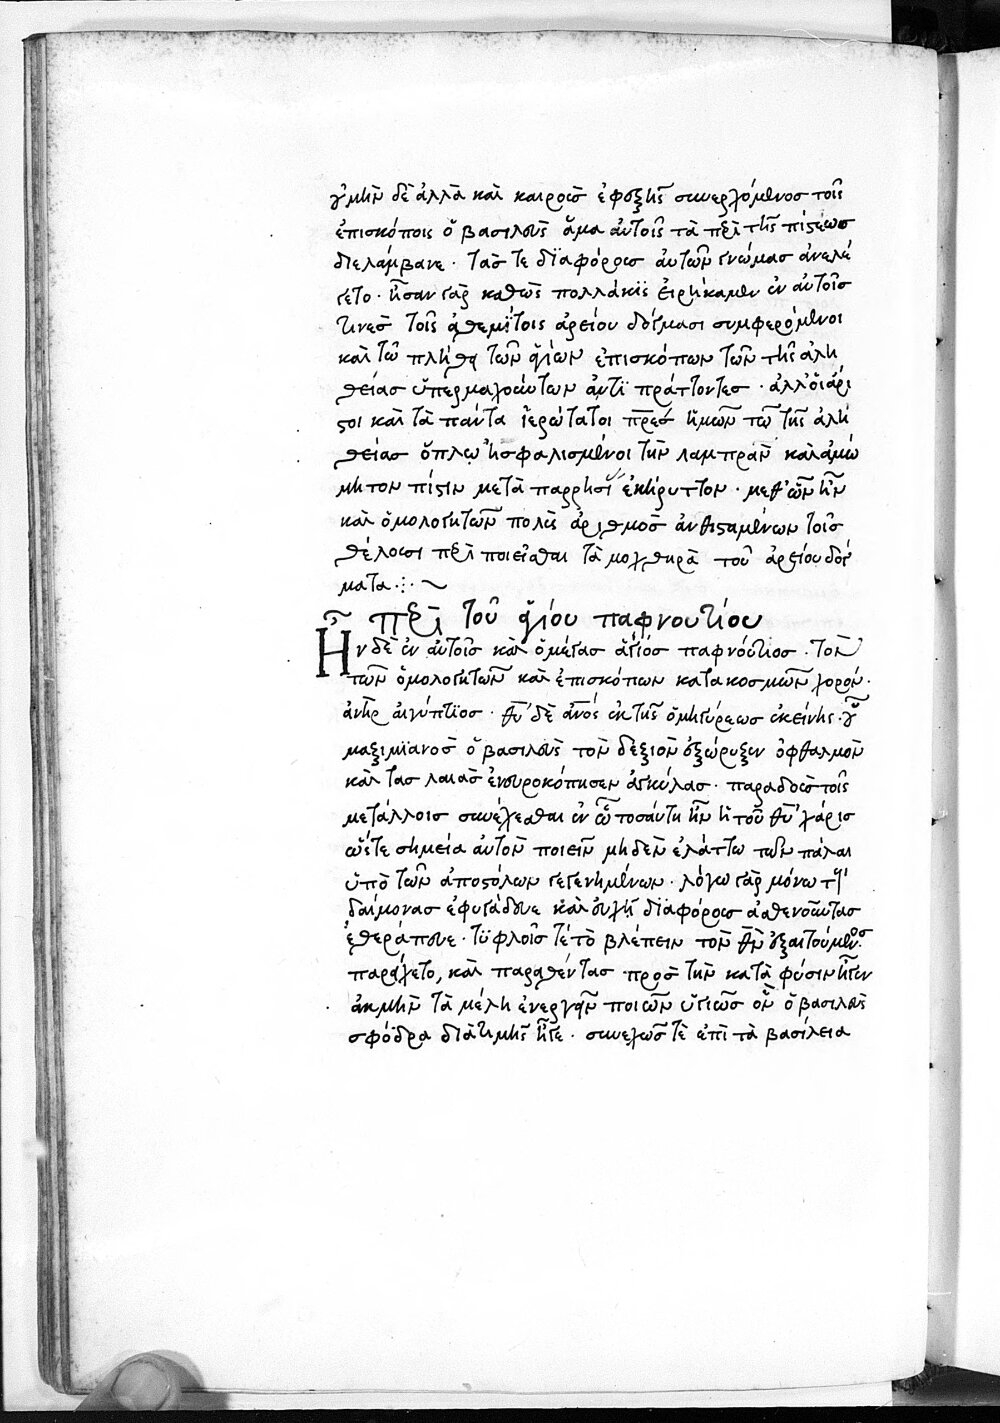 οὐ μὴν δὲ ἀλλὰ καὶ καιροῖς ἐφεξῆς συνερχόμενος τοῖς
ἐπισκόποις ὁ βασιλεὺς ἅμα αὐτοῖς τὰ περὶ τῆς πίστεως
διελάμβανε · τὰς τε διαφόρους αὐτῶν γνώμας ἀνελέ
γετο · ἦσαν γὰρ καθὼς πολλάκις εἰρήκαμεν ἐν αὐτοῖς
τινες τοῖς ἀθεμίτοις ἀρείου δόγμασι συμφερόμενοι
καὶ τῶ πλήθει τῶν ἁγίων ἐπισκόπων τῶν τῆς ἀλη
θείας ὑπερμαχούντων ἀντιπράττοντες · ἀλλ' οἱ ἄρι
στοι καὶ τὰ πάντα ἱερώτατοι πρες ἡμῶν τῶ τῆς ἀλη
θείας ὅπλω ἠσφαλισμένοι τὴν λαμπρὰν καὶ ἀμώ
μητον πίστιν μετὰ παρρησί ἐκήρυττον · μεθ' ὧν ἦν
καὶ ὁμολογητῶν πολὺς ἀριθμὸς ἀνθισταμένων τοῖς
θέλουσι περιποιεῖσθαι τὰ μοχθηρὰ τοῦ ἀρείου δόγ
ματα ·:· ~
περὶ τοῦ ἁγίου παφνουτίου
Ἦν δὲ ἐν αὐτοῖς καὶ ὁ μέγας ἅγιος παφνούτιος · τὸν
τῶν ὁμολογητῶν καὶ ἐπισκόπων κατακοσμῶν χορόν ·
ἀνὴρ αἰγύπτιος · θυ δὲ ανος ἐκ τῆς ὁμηγύρεως ἐκείνης · οὗ
μαξιμιανὸς ὁ βασιλεὺς τὸν δεξιὸν ἐξώρυξεν ὀφθαλμὸν
καὶ τὰς λαιὰς ἐνευροκόπησεν ἀγκύλας · παραδοὺς τοῖς
μετάλλοις συνέχεσθαι ἐν ὧ τοσαύτη ἦν ἡ τοῦ θυ χάρις
ὥστε σημεῖα αὐτὸν ποιεῖν μηδὲν ἐλάττω τῶν πάλαι
ὑπὸ τῶν ἀποστόλων γεγενημένων · λόγω γὰρ μόνω τοὺς
δαίμονας ἐφυγάδευε καὶ εὐχῆ διαφόρως ἀσθενοῦντας
ἐθεράπευε · τυφλοῖς τὲ τὸ βλέπειν τὸν θν ἐξαιτούμενος
παρείχετο, καὶ παρεθέντας πρὸς τὴν κατὰ φύσιν ἦγεν
ἀκμὴν τὰ μέλη ἐνεργεῖν ποιῶν ὑγιῶς ὃν ὁ βασιλεὺς
σφόδρα διὰ τιμῆς ἦγε · συνεχῶς τὲ ἐπὶ τὰ βασίλεια